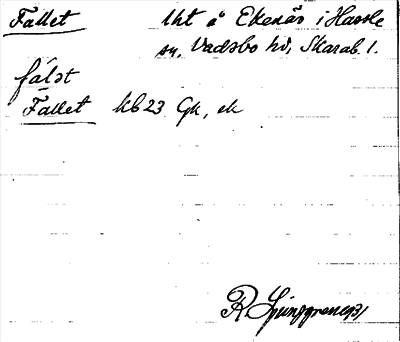 Fallet Uht å Ekenäs i Hassle
sn, Vadsbo hd, Skarab. l.
fálət
Fallet kb 23 Gk, ek
R. Ljunggren 1931